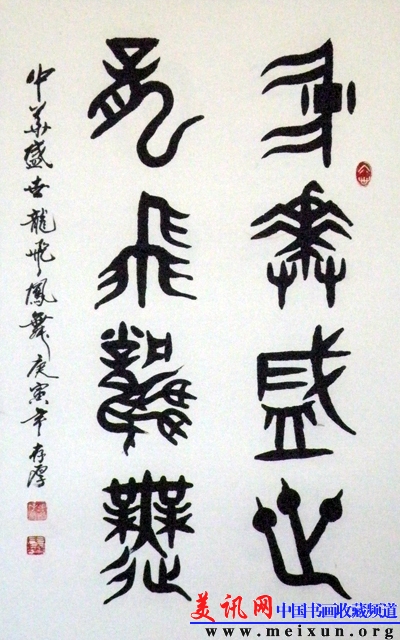 中華盛世
龍飛鳳舞
中華盛世龍飛鳳舞庚寅年存厚
美讯网 中国书画收藏频道
www.meixun.org